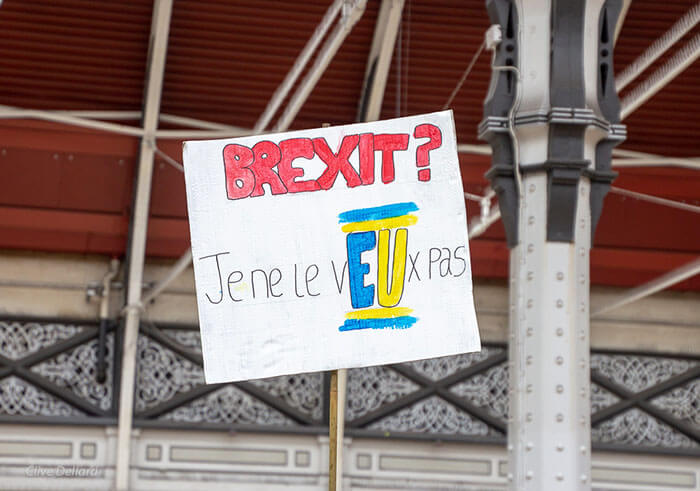 BREXIT?
Je ne le vEUx pas
Clive Dellard